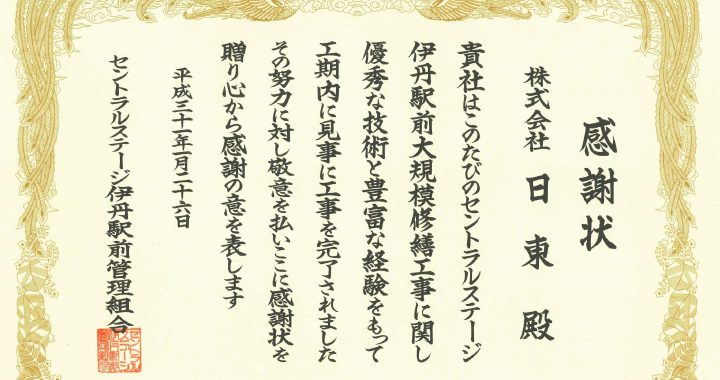 感謝状
株式会社 日東 殿
貴社はこのたびのセントラルステージ
伊丹駅前大規模修繕工事に関し
優秀な技術と豊富な経験をもって
工期内に見事に工事を完了されました
その努力に対し敬意を払いここに感謝状を
贈り心から感謝の意を表します
平成三十一年一月二十六日
セントラルステージ伊丹駅前管理組合